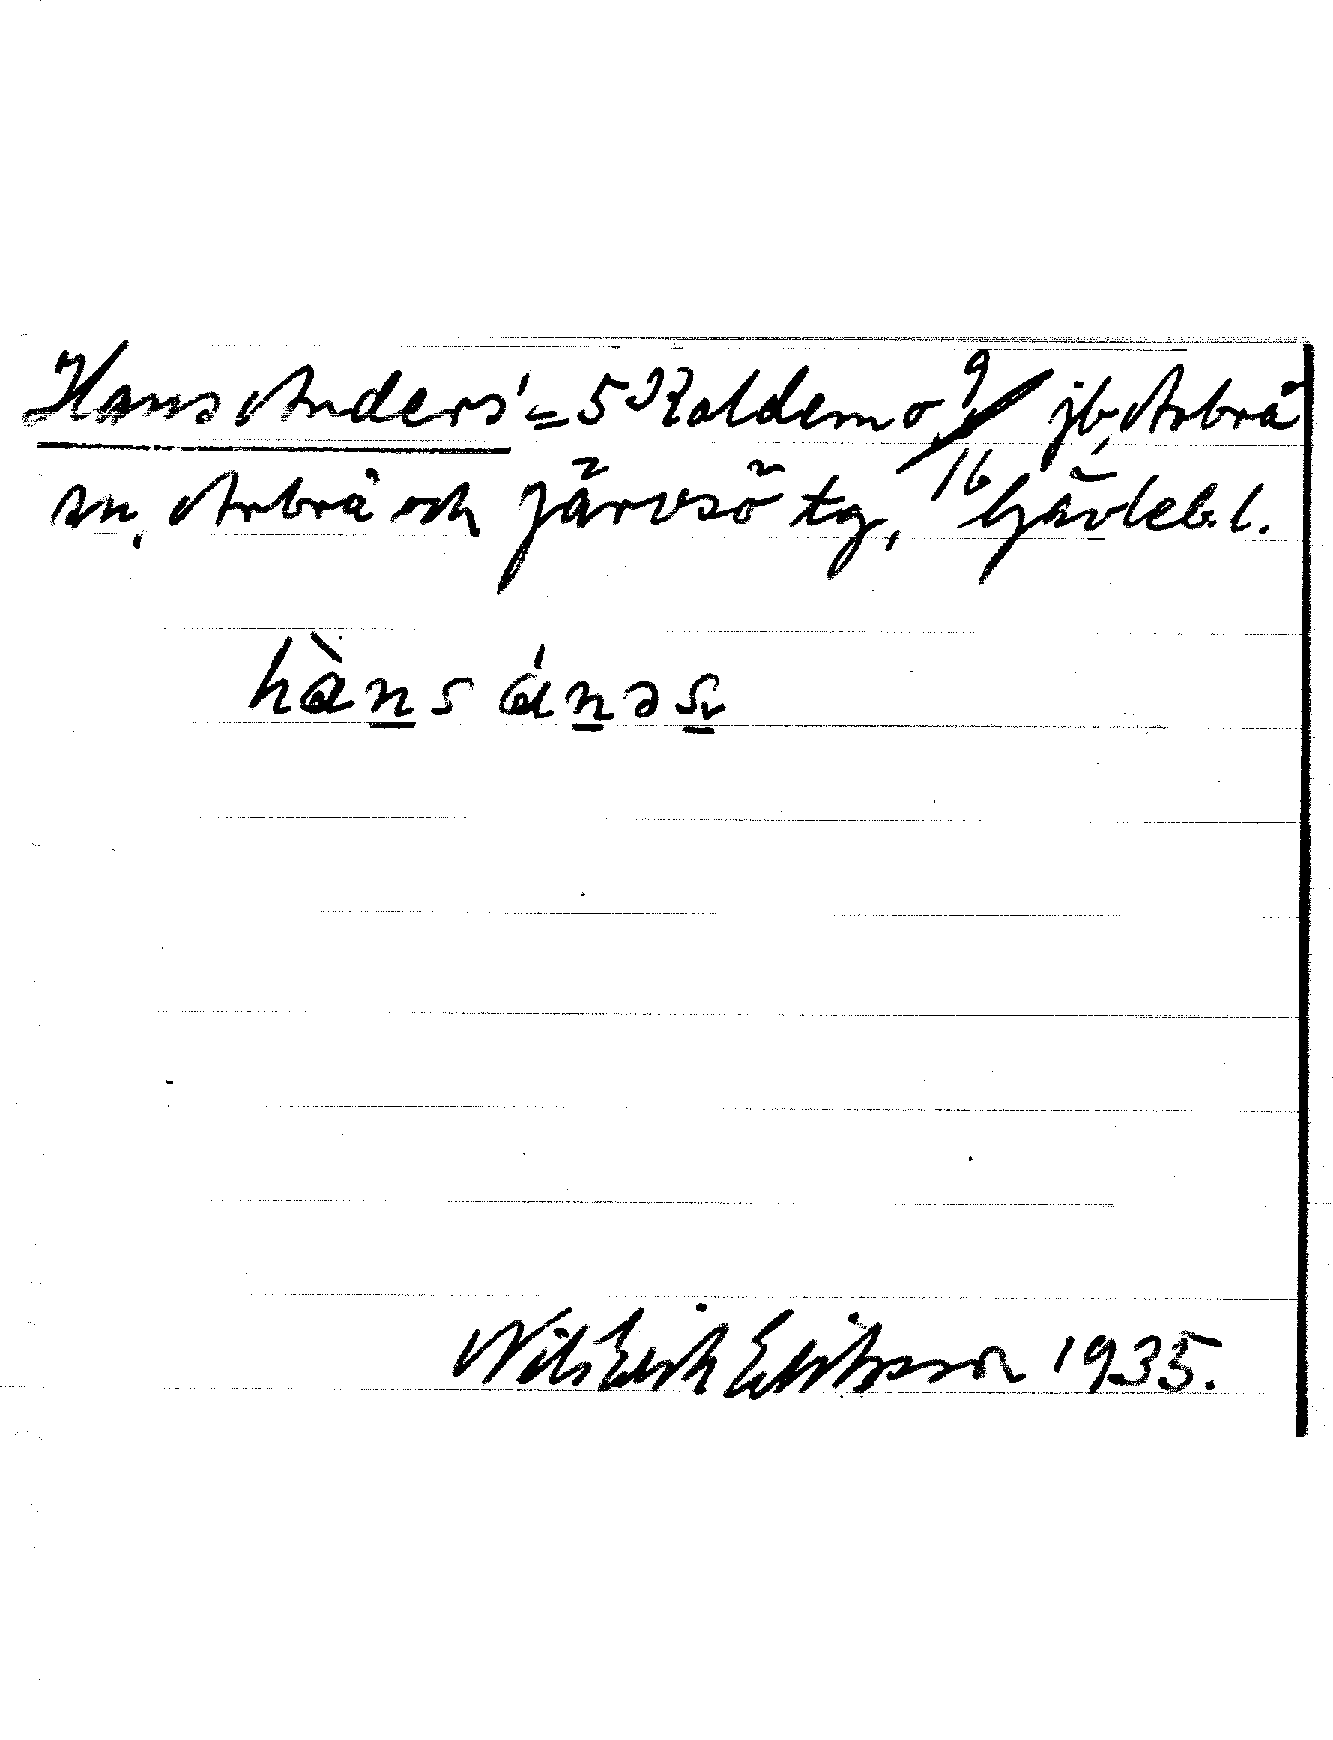 Hans Anders' = 5 Koldemo, 9/16 jb, Arbrå
sn, Arbrå och Järvsö tg, Gävleb. l.
hàns ánəs
Nils Erik Eriksson 1935.